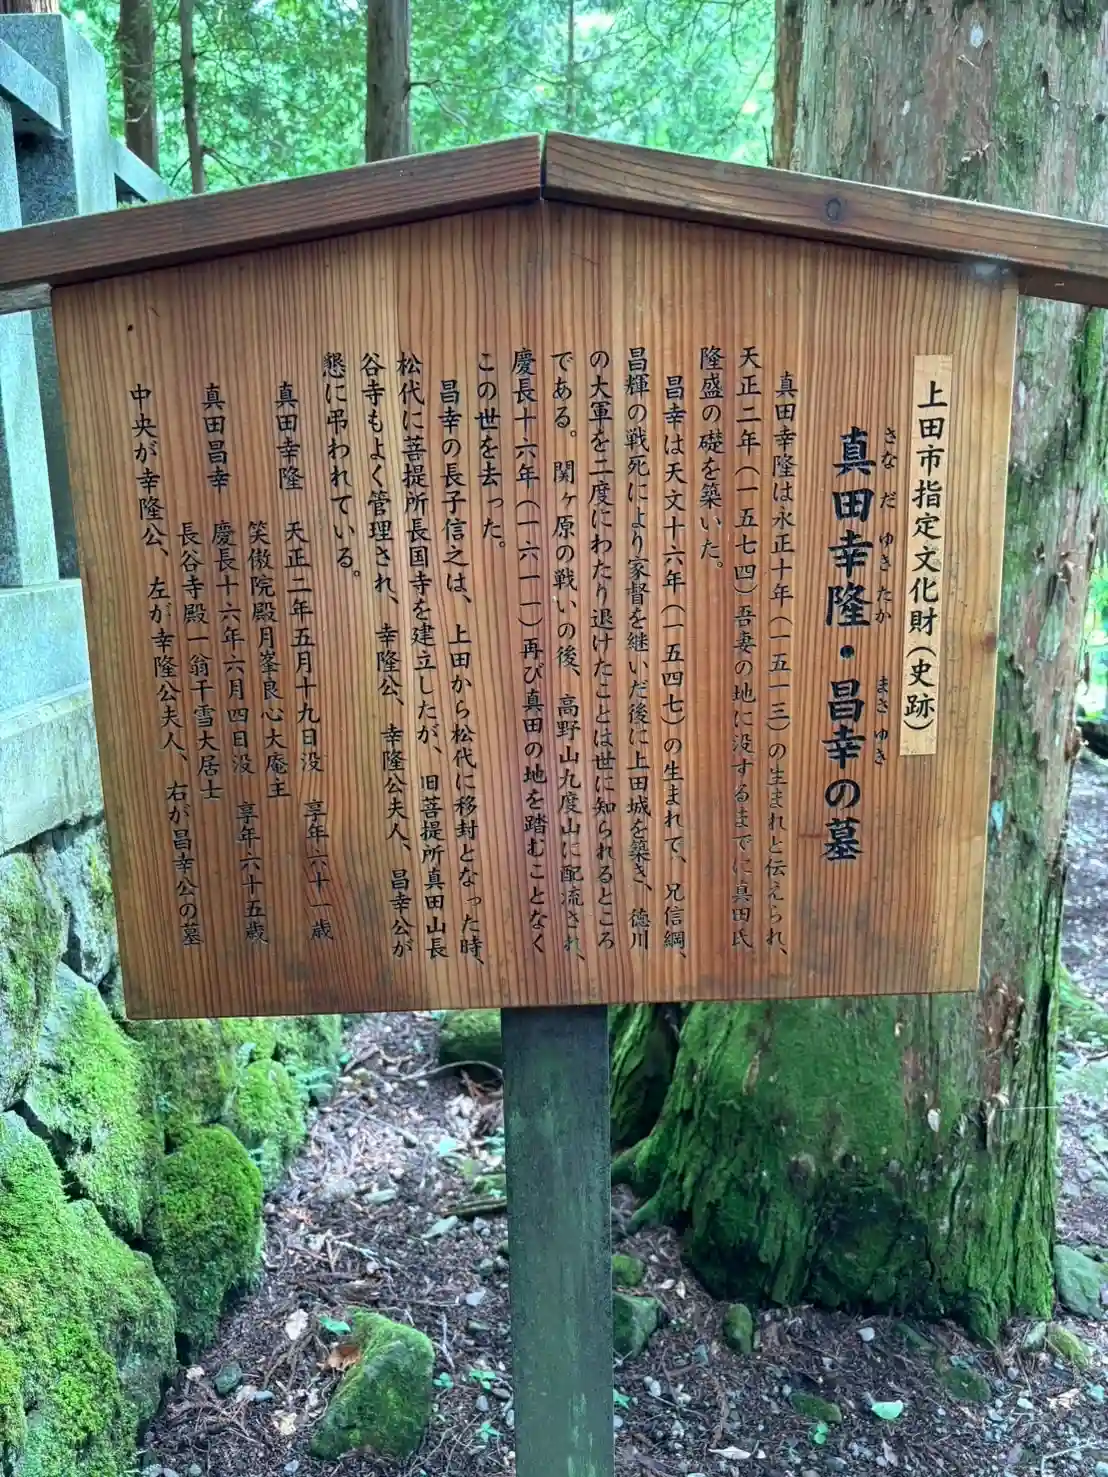 上田市指定文化財(史跡)
さなだゆきたか まさゆき
真田幸隆・昌幸の墓
真田幸隆は永正十年(一五一三)の生まれと伝えられ、
天正二年(一五七四)吾妻の地に没するまでに真田氏
隆盛の礎を築いた。
昌幸は天文十六年(一五四七)の生まれで、兄信綱、
昌輝の戦死により家督を継いだ後に上田城を築き、徳川
の大軍を二度にわたり退けたことは世に知られるところ
である。関ヶ原の戦いの後、高野山九度山に配流され、
慶長十六年(一六一一)再び真田の地を踏むことなく
この世を去った。
昌幸の長子信之は、上田から松代に移封となった時、
松代に菩提所長国寺を建立したが、旧菩提所真田山長
谷寺もよく管理され、幸隆公、幸隆公夫人、昌幸公が
懇に弔われている。
真田幸隆 天正二年五月十九日没 享年六十一歳
笑傲院殿月峯良心大庵主
真田昌幸 慶長十六年六月四日没 享年六十五歳
長谷寺殿一翁千雪大居士
中央が幸隆公、左が幸隆公夫人、右が昌幸公の墓